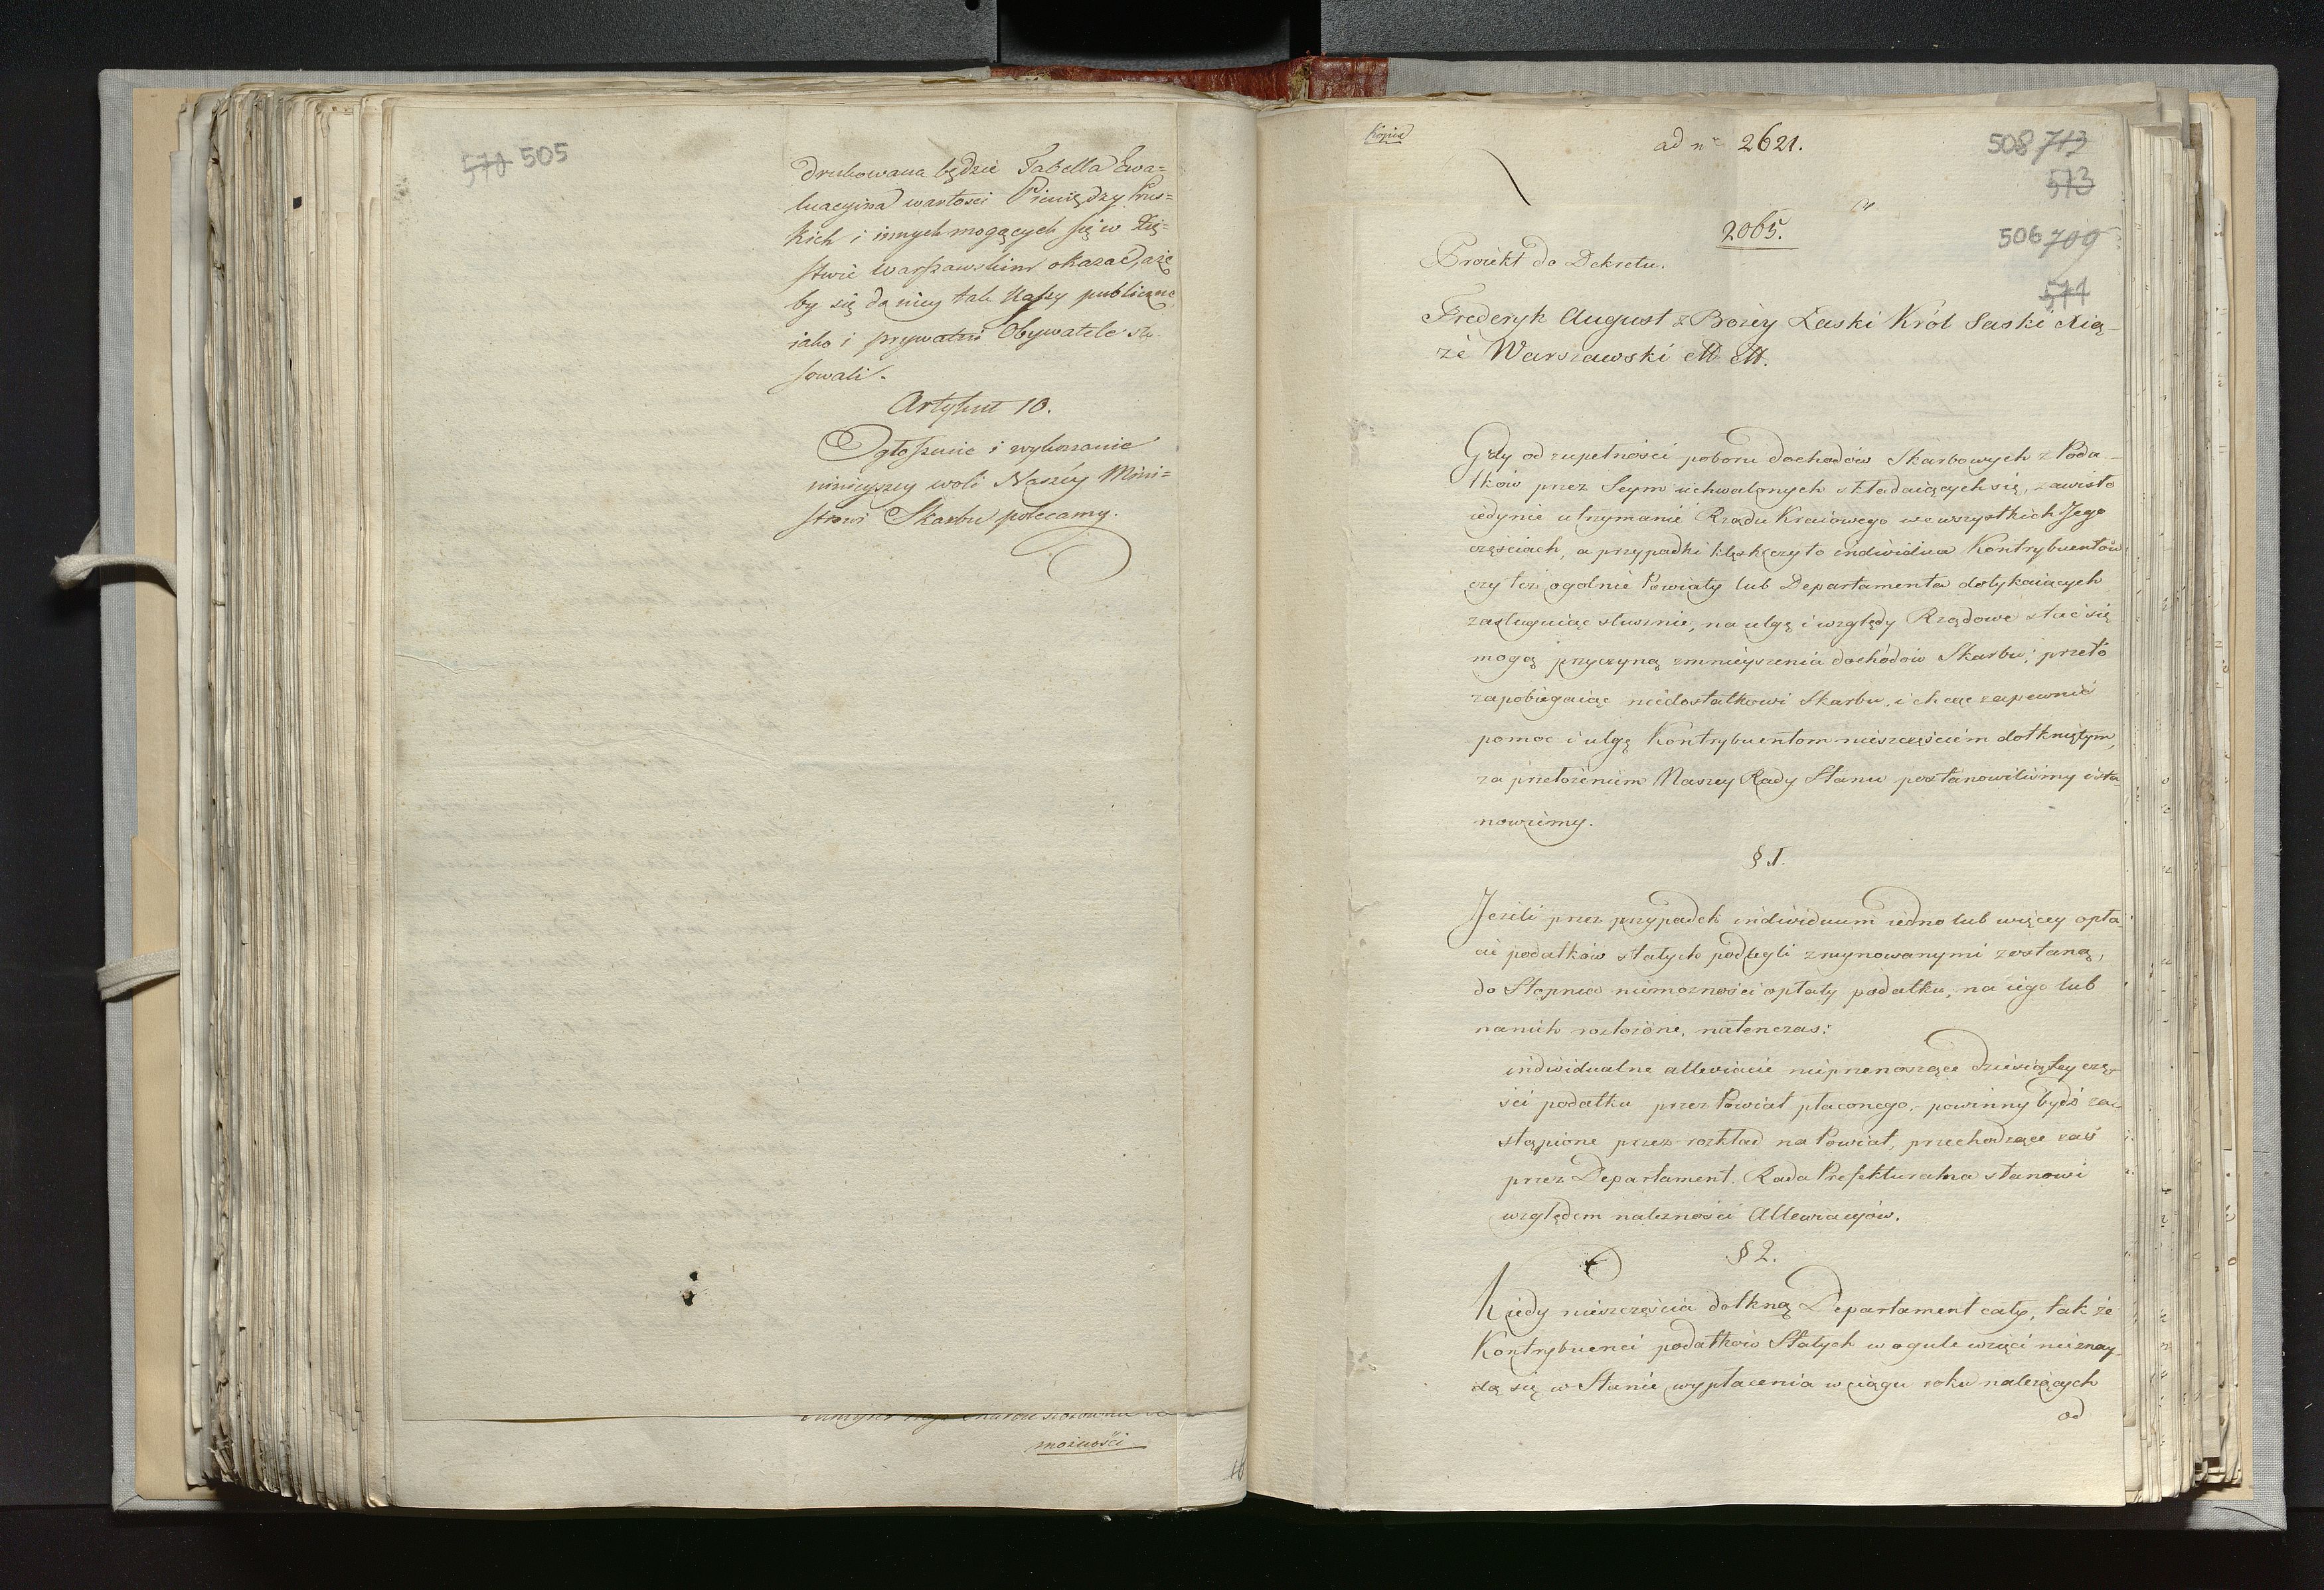 570 505
drukowana będzie Tabella Ewa=
luacyina wartości Pieniędzy Prus=
kich i innych mogących się w Xię=
stwie Warszawskim okazać, aże
by się do niey tak Kassy publiczne
iako i prywatni Obywatele sto
sowali.
Artykuł 10.
Ogłoszenie i wykonanie
ninieyszey woli Naszéy Mini=
strowi Skarbu polecamy.
możności
Kopia
ad nr 2621.
508 713
573
2065.
506 709
571
Proiekt do Dekretu.
Frederyk August z Bożéy Łaski Król Saski Xią-
żę Warszawski
Gdy od zupełności poboru dochodów Skarbowych z Poda-
tków przez Seym uchwalonych składaiących się, zawisło
iedynie utrzymanie Rządu Kraiowego we wszystkich Jego
częściach, a przypadki klęsk czy to individua Kontrybuentów
czy też ogolnie Powiaty lub Departamenta dotykaiących
zasługuiąc słusznie, na ulgę i względy Rządowe stać się
mogą przyczyną zmnieyszenia dochodów Skarbu; przeto
zapobiegaiąc niedostatkowi Skarbu, i chcąc zapewnić
pomoc i ulgę Kontrybuentom nieszczęściem dotkniętym,
za przełożeniem Naszey Rady Stanu postanowiliśmy i sta-
nowiemy.
§ 1.
Jeżeli przez przypadek individuum iedno lub więcey opła
cie podatków stałych podlegli zruynowanymi zostaną,
do Stopnia niemożności opłaty podatku, na iego lub
na nich rozłożone, natenczas:
individualne alleviacie nieprzenoszące dziesiątey czę-
ści podatku przez Powiat płaconego, powinny bydź za-
stąpione przez rozkład na Powiat, przechodzące zaś
przez Departament. Rada Prefekturalna stanowi
względem należności Allewiacyów.
§ 2.
Kiedy nieszczęścia dotkną Departament cały, tak że
Kontrybuenci podatków Stałych w ogule wzięci nieznay-
dą się w Stanie wypłacenia w ciągu roku należących
od